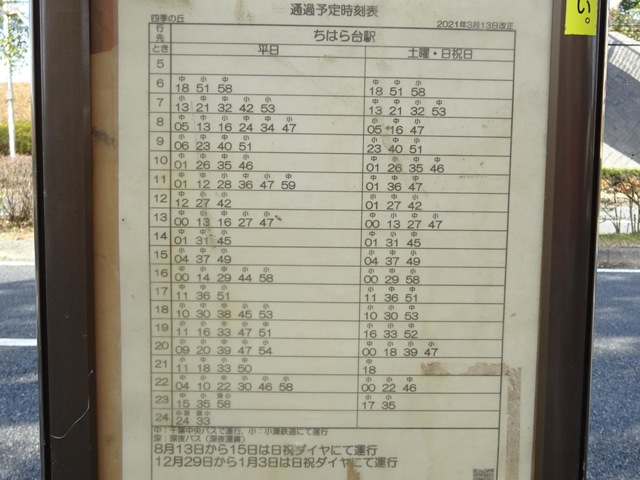 い。
通過予定時刻表
四季の丘 2021年3月13日改正
行先 ちはら台駅
とき 平日 土曜・日祝日
5
6 18 51 58 18 51 58
7 13 21 32 42 53 13 21 32 53
8 05 13 16 24 34 47 05 16 47
9 06 23 40 51 23 40 51
10 01 26 35 46 01 26 35 46
11 01 12 28 36 47 59 01 36 47
12 12 27 42 01 27 42
13 00 13 16 27 47 00 13 27 47
14 01 31 45 01 31 45
15 04 37 49 04 37 49
16 00 14 29 44 58 00 29 58
17 11 36 51 11 36 51
18 10 30 38 45 53 10 30 53
19 11 16 33 47 51 16 33 52
20 09 20 39 47 54 00 18 39 47
21 11 18 33 50 18
22 04 10 22 30 46 58 00 22 46
23 15 35 58 17 35
24 24 33
中：千葉中央バスで運行、小：小湊鉄道にて運行
深：深夜バス（深夜運賃）
8月13日から15日は日祝ダイヤにて運行
12月29日から1月3日は日祝ダイヤにて運行